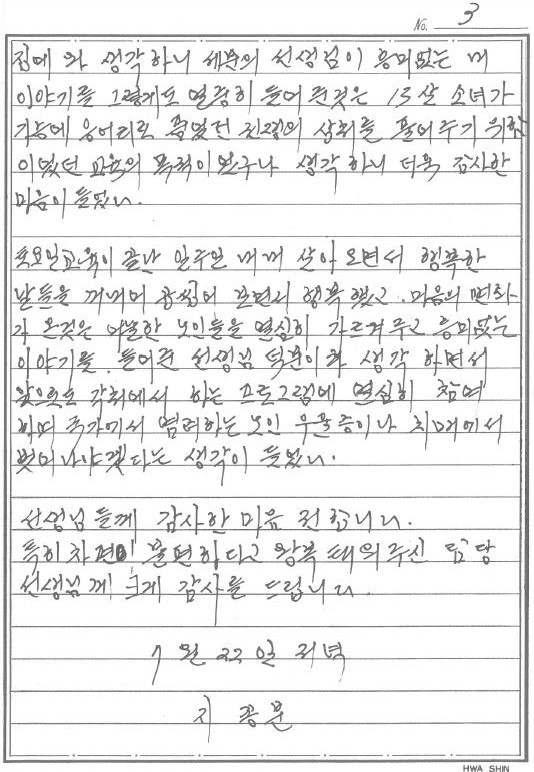 No. 3
집에 와 생각하니 세분의 선생님이 흥미없는 내
이야기를 그렇게도 열령히 들어 준것은 13살 소녀가
가슴에 응어리로 품었던 전쟁의 상처를 풀어주기 위함
이였던 교육의 목적이였구나 생각 하니 더욱 감사한
마음이 들었다.
토요일교육이 끝난 일주일 내내 살아 오면서 행복한
날들을 꺼내어 곱씹어 보면서 행복 했고. 마음의 변화
가 온것은 어눌한 노인들을 열심히 가르켜주고 흥미없는
이야기를 들어준 선생님 덕분이라 생각 하면서
앞으로도 각처에서 하는 프로그램에 열심히 참여
하며 국가에서 염려하는 노인 우울증이나 치매에서
벗어나야겟다는 생각이 들었다.
선생님들께 감사한 마음 전합니다.
특히 차편이 불편하다고 왕복 태워주신 담당
선생님께 크게 감사를 드립니다.
7월 22일 저녁
지
HWA SHIN